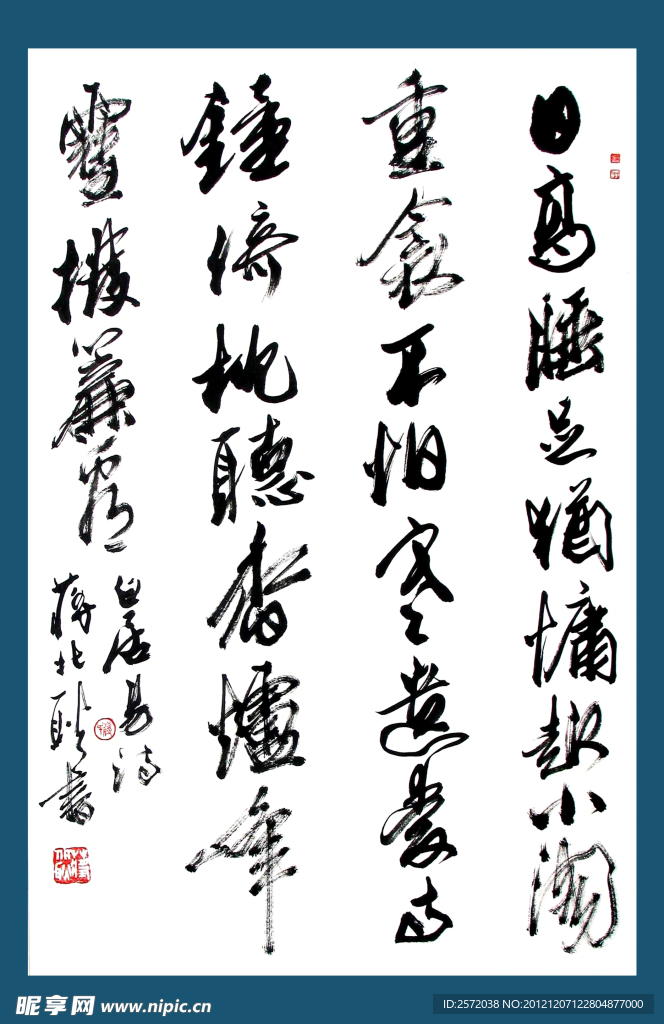 日高睡足猶慵起小閣
重衾不怕寒遺愛寺
鐘倚枕聽香爐峯
雪撥簾看
白居易詩
蔣北耿書
昵享网 www.nipic.cn
ID:2572038 NO:20121207122804877000